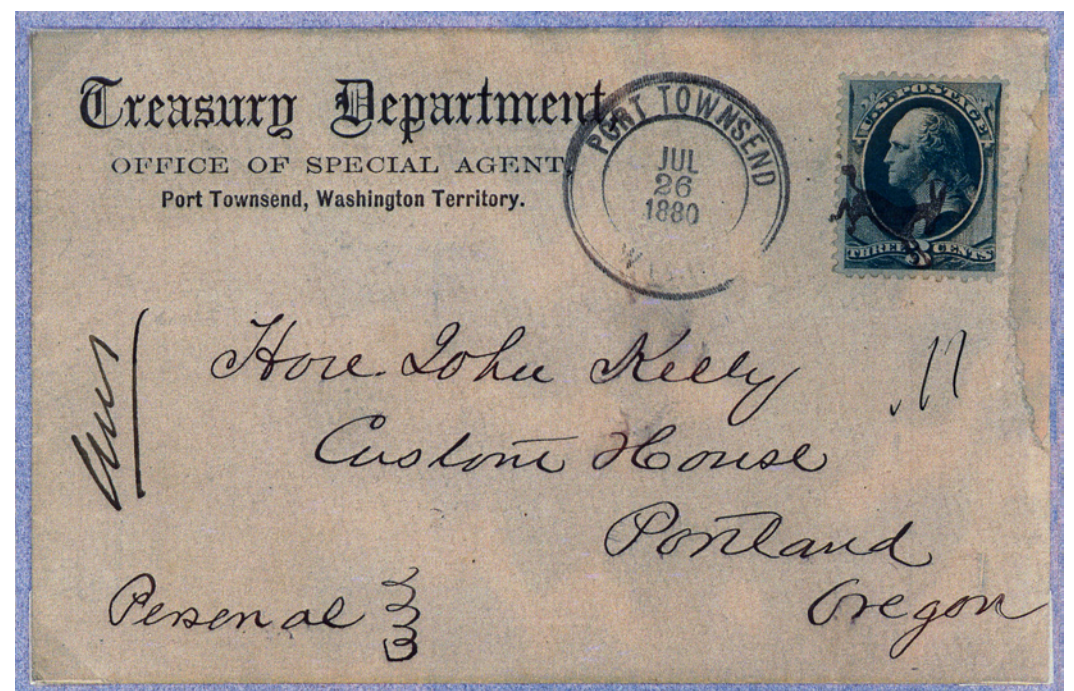 Treasury Department,
OFFICE OF SPECIAL AGENT,
Port Townsend, Washington Territory.
PORT TOWNSEND
JUL
26
1880
U.S. POSTAGE
THREE 3 CENTS
Hon. John Kelly
Custom House
Portland
Oregon
Personal
Ans
11